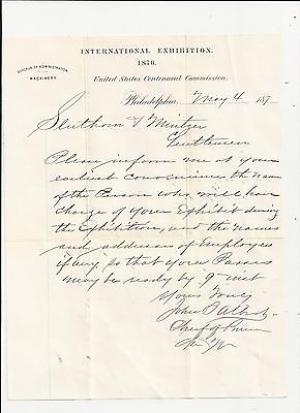 INTERNATIONAL EXHIBITION.
1876.
BUREAU OF ADMINISTRATION
MACHINERY
United States Centennial Commission.
Philadelphia, May 4 187
Gentlemen
Please inform me at your
earliest convenience the name
of the Person who will have
charge of your Exhibit during
the Exhibition, and the names
and addresses of Employees
if any so that your Passes
may be ready by 9th inst
Yours Truly
John
Chief of